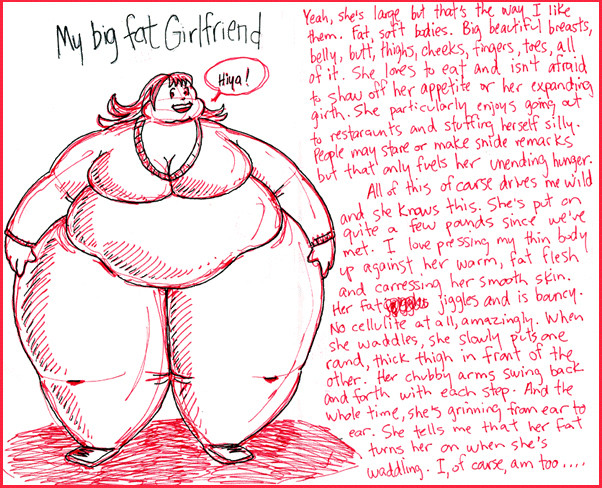 My big fat Girlfriend
Hiya!
Yeah, she's large but that's the way I like
them. Fat, soft bodies. Big beautiful breasts,
belly, butt, thighs, cheeks, fingers, toes, all
of it. She loves to eat and isn't afraid
to show off her appetite or her expanding
girth. She particularly enjoys going out
to restaraunts and stuffing herself silly.
People may stare or make snide remarks
but that only fuels her unending hunger.
All of this of course drives me wild
and she knows this. She's put on
quite a few pounds since we've
met. I love pressing my thin body
up against her warm, fat flesh
and carressing her smooth skin.
Her fat jiggles and is bouncy.
No cellulite at all, amazingly. When
she waddles, she slowly puts one
round, thick thigh in front of the
other. Her chubby arms swing back
and forth with each step. And the
whole time, she's grinning from ear to
ear. She tells me that her fat
turns her on when she's
waddling. I, of course, am too....